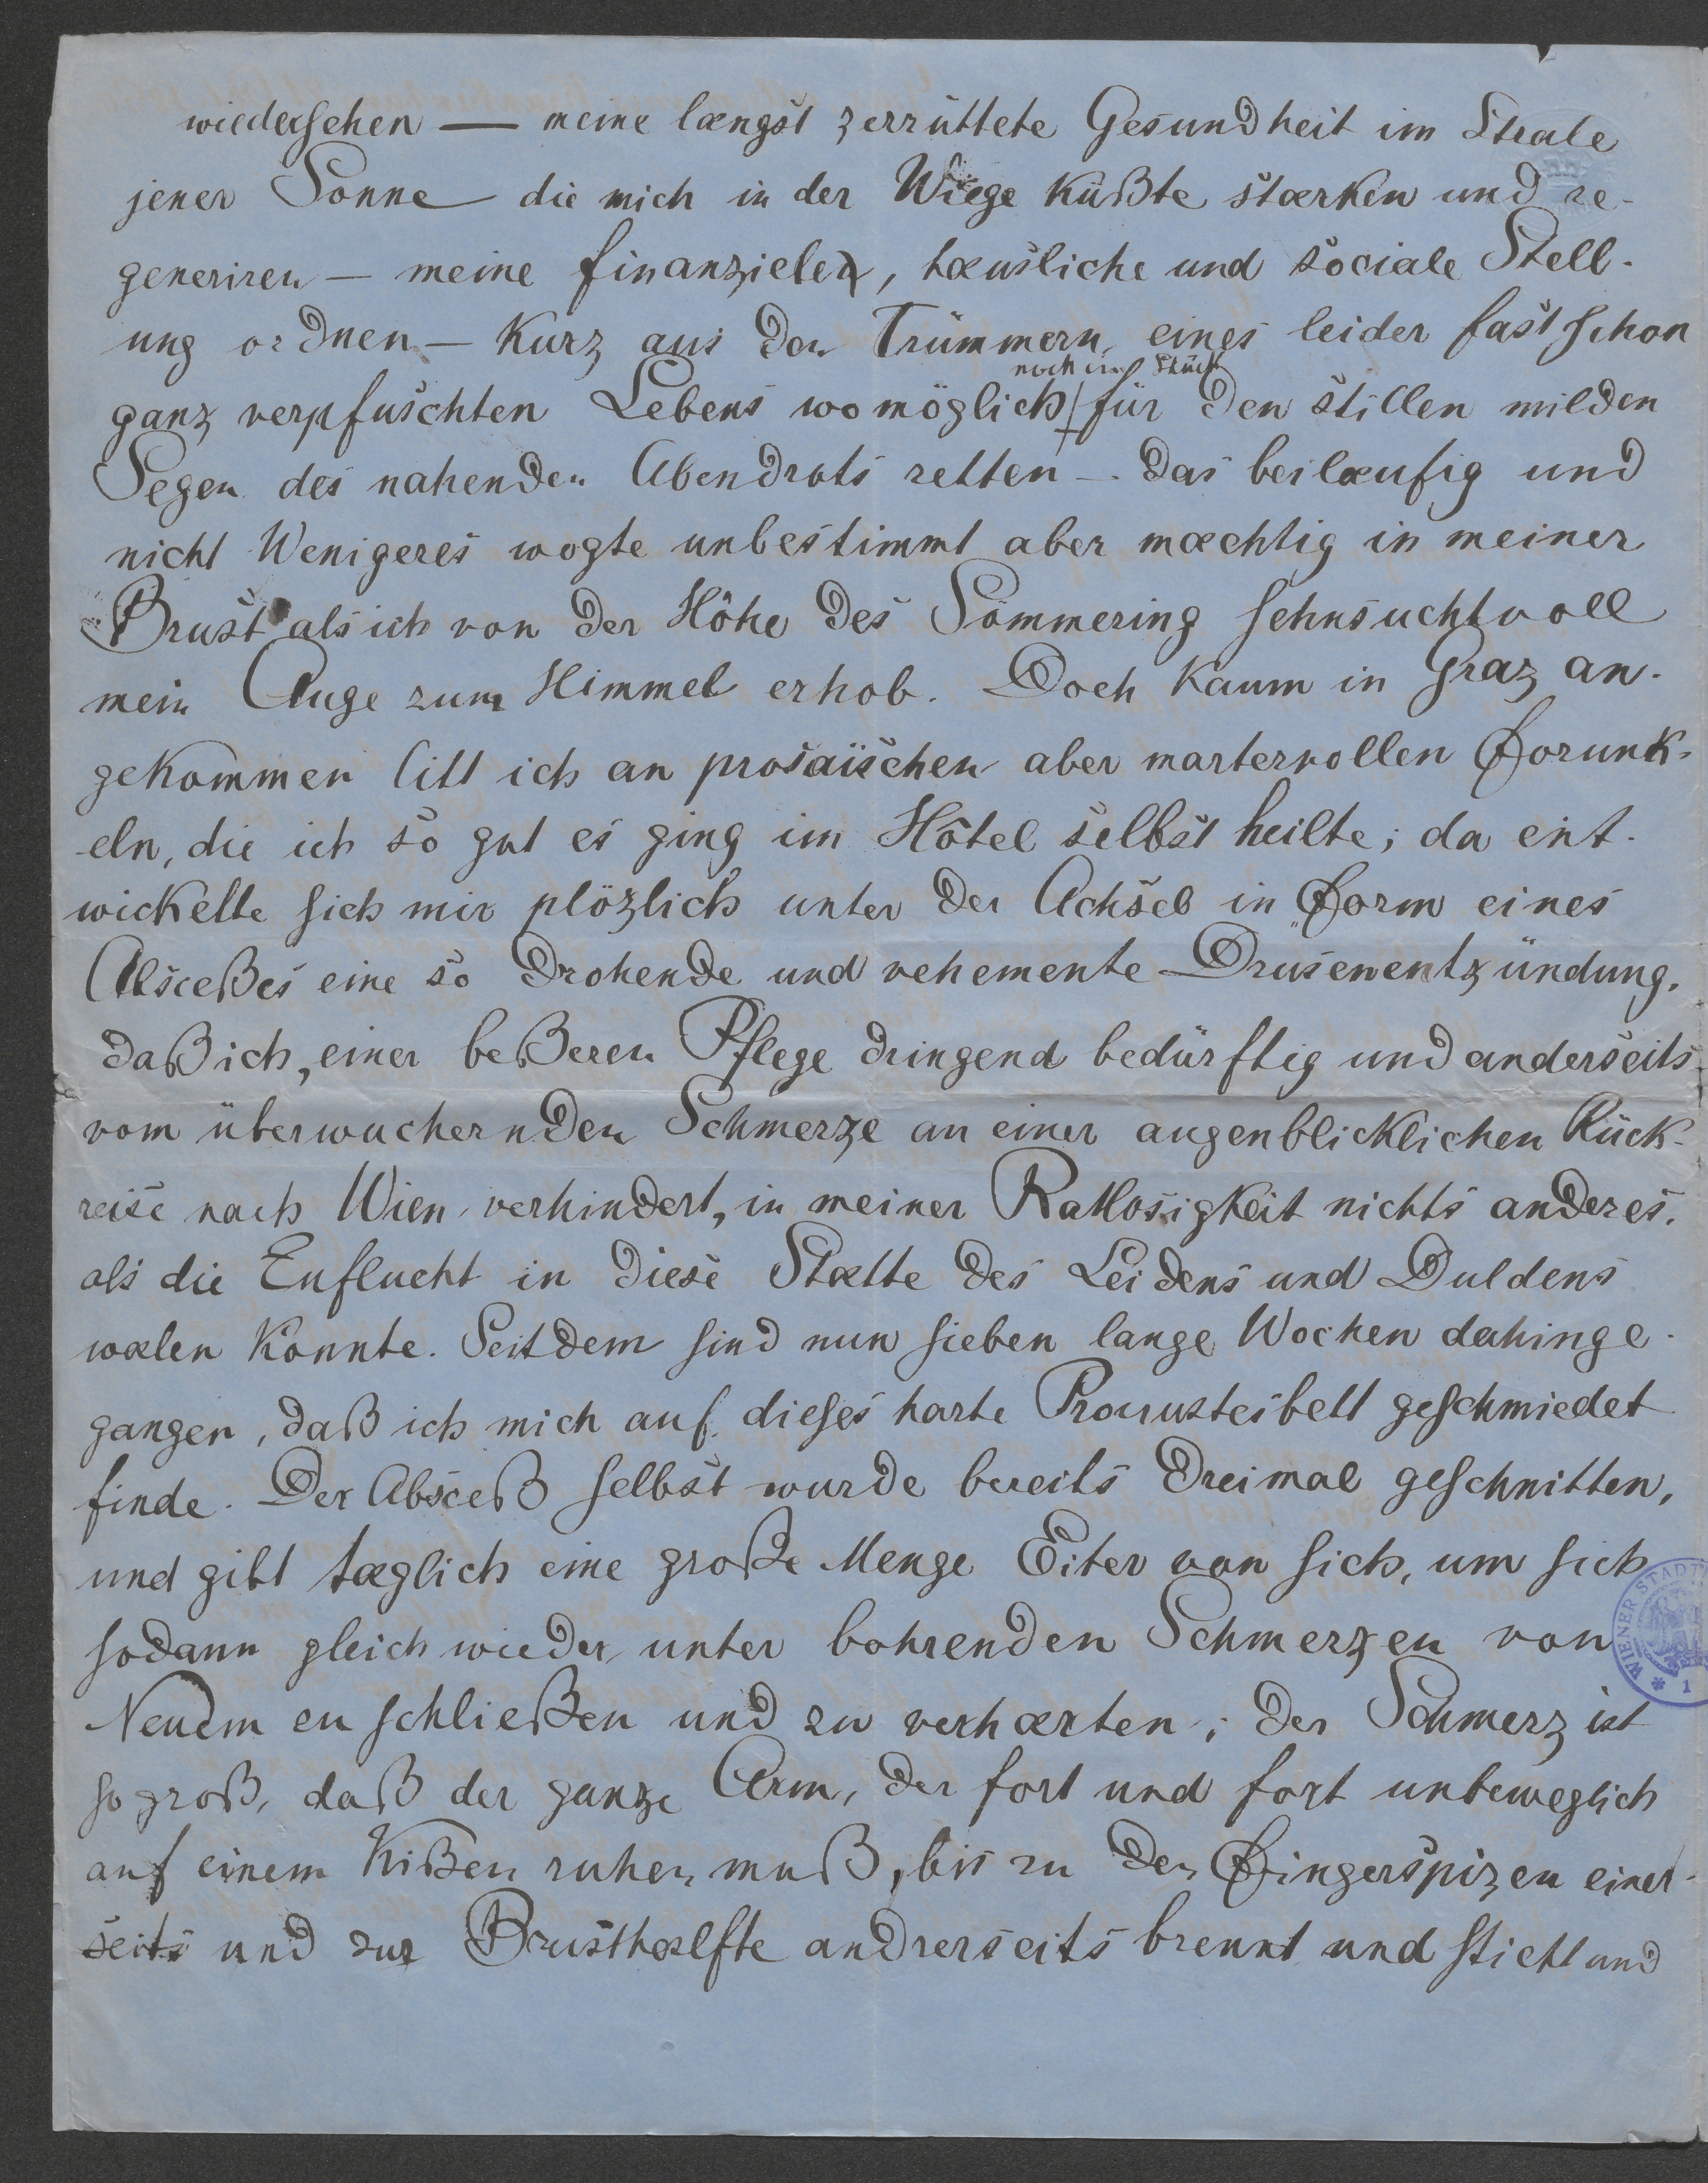 wiedersehen — meine længst zerrüttete Gesundheit im Strale
jener Sonne — die mich in der Wiege küßte stærken und re-
generiren — meine finanzielle, hæusliche und sociale Stell-
ung ordnen — Kurz aus den Trümmern eines leider fast schon
noch ein Stück
ganz verpfuschten Lebens womöglich für den stillen milden
Segen des nahenden Abendrots retten — Das beilæufig und
nicht Wenigeres wogte unbestimmt aber mæchtig in meiner
Brust als ich von der Höhe des Sömmering sehnsuchtvoll
mein Auge zum Himmel erhob. Doch kaum in Graz an-
gekommen litt ich an prosaïschen aber martervollen Forunk-
eln, die ich so gut es ging im Hôtel selbst heilte; da ent-
wickelte sich mir plözlich unter der Achsel in Form eines
Absceßes eine so drohende und vehemente Drüsenentzündung,
daß ich, einer beßeren Pflege dringend bedürftig und anderseits
vom überwuchernden Schmerze an einer augenblicklichen Rück-
reise nach Wien verhindert, in meiner Ratlosigkeit nichts anderes,
als die Zuflucht in diese Stætte des Leidens und Duldens
wælen konnte. Seitdem sind nun sieben lange Wochen dahinge-
gangen, daß ich mich auf dieses harte Procrustesbett geschmiedet
finde. Der Absceß selbst wurde bereits dreimal geschnitten,
und gibt tæglich eine große Menge Eiter von sich, um sich
sodann gleich wieder unter bohrenden Schmerzen von
Neuem zu schließen und zu verhærten; der Schmerz ist
so groß, daß der ganze Arm, der fort und fort unbeweglich
auf einem Kißen ruhen muß, bis zu den Fingerspizen einer-
seits und zur Brusthælfte andrerseits brennt und sticht und
WIENER STADT
* 1